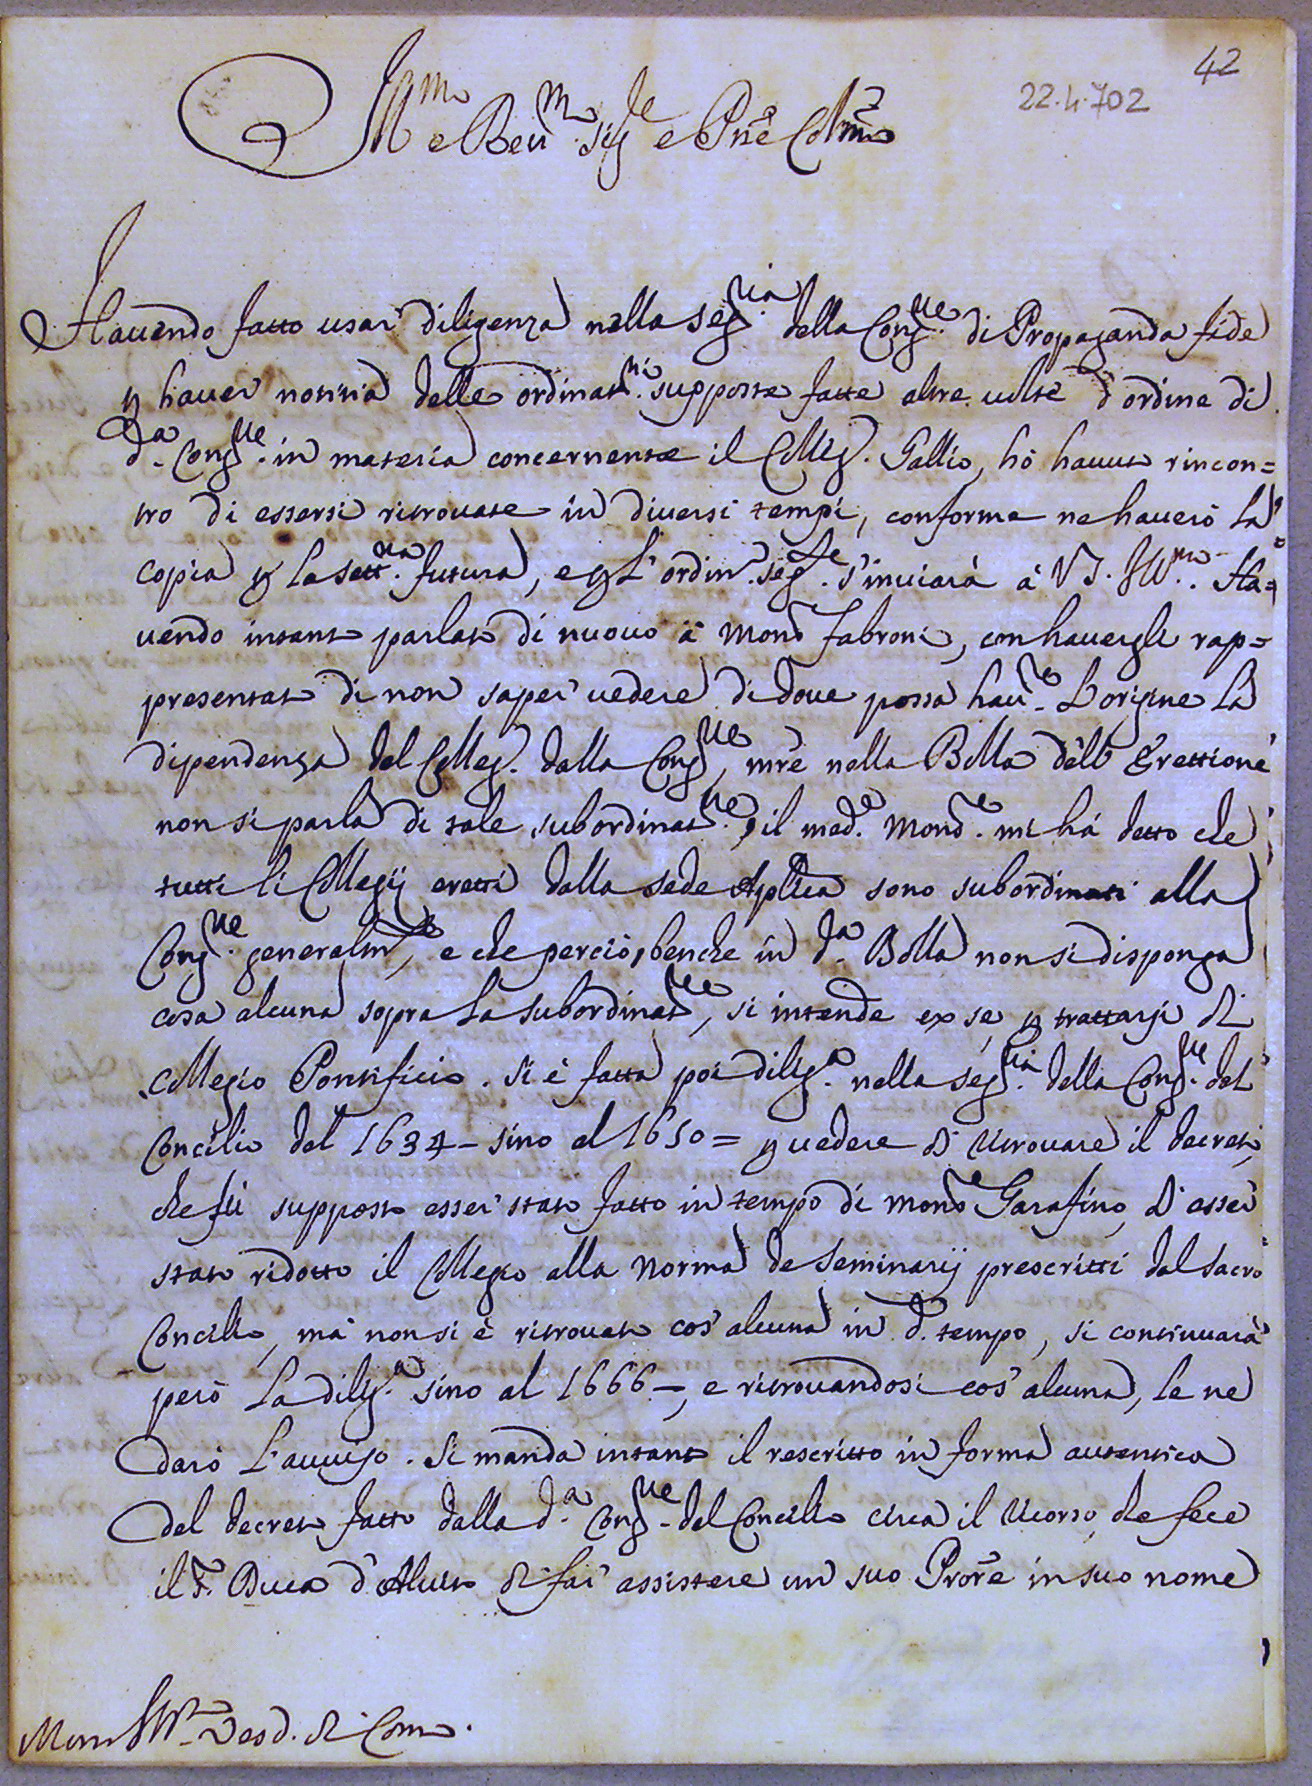 42
22.4.702
Ill.mo e Rev.mo Sig.re e Pne Colmo
Havendo fatto usar diligenza nella Seg.ria della Cong.ne di Propaganda fide
p haver notitia delle ordinat.ni supposte fatte altre volte d'ordine di
d.a Cong.ne in materia concernente il Colleg. Gallio, hò havuto rincon=
tro di essersi ritrovate in diversi tempi, conforme ne haverò la
copia p la sett.na futura, e p l'ordin. seg.te s'inviarà à VS. Ill.ma. Ha=
vendo intanto parlato di nuovo à Mons.r Fabroni, con havergli rap=
presentato di non saper vedere di dove possa hav.re l'origine la
dipendenza del Colleg. dalla Cong.ne, mre nella Bolla dell'Erettione
non si parla di tale subordinat.ne, il med.o Mons.re mi hà detto che
tutti li Collegij eretti dalla Sede Aplica sono subordinati alla
Cong.ne generalm.te, e che perciò, benche in d.a Bolla non si disponga
cosa alcuna sopra la subordinat.ne, si intende ex se, p trattarsi di
Collegio Pontificio. Si è fatta poi dilig.a nella Seg.ria della Cong.ne del
Concilio dal 1634 - sino al 1650 = p vedere di ritrovare il decreto,
che fù supposto esser stato fatto in tempo di Mons.r Carafino, d'esser
stato ridotto il Collegio alla norma de Seminarij prescritti dal Sacro
Concilio, mà non si è ritrovato cos'alcuna in d.o tempo, si continuarà
però la dilig.a sino al 1666 -, e ritrovandosi cos'alcuna, le ne
darò l'avviso. Si manda intanto il rescritto in forma autentica
del decreto fatto dalla d.a Cong.ne del Concilio circa il ricorso, che fece
il S. Duca d'Alvito di far assistere un suo Prore in suo nome
Mons Ill.mo Vesc. di Como.